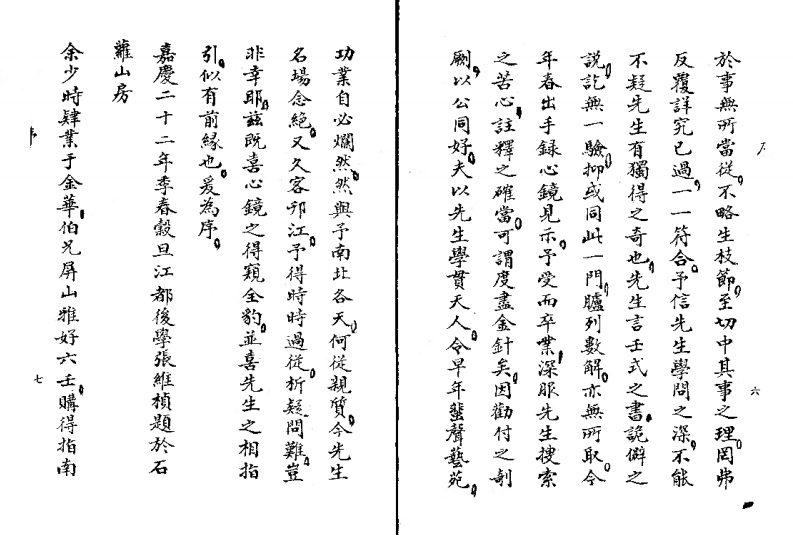 於事無所當從不略生枝節至切中其事之理罔弗
反覆詳究已過一一符合予信先生學問之深不能
不疑先生有獨得之奇也先生言壬式之書詭僻之
說訖無一驗抑或同此一門臚列數解亦無所取今
年春出手録心鏡見示予受而卒業深服先生搜索
之苦心註釋之確當可謂度盡金針矣因勸付之剞
劂以公同好夫以先生學貫天人令早年蜚聲藝苑
六
功業自必爛然然與予南北各天何從親質今先生
名場念絕又久客邗江予得時時過從析疑問難豈
非幸耶茲既喜心鏡之得窺全豹並喜先生之相指
引似有前緣也爰為序
嘉慶二十二年季春穀旦江都後學張維楨題於石
蘿山房
余少時肄業于金華伯兄屏山雅好六壬購得指南
七